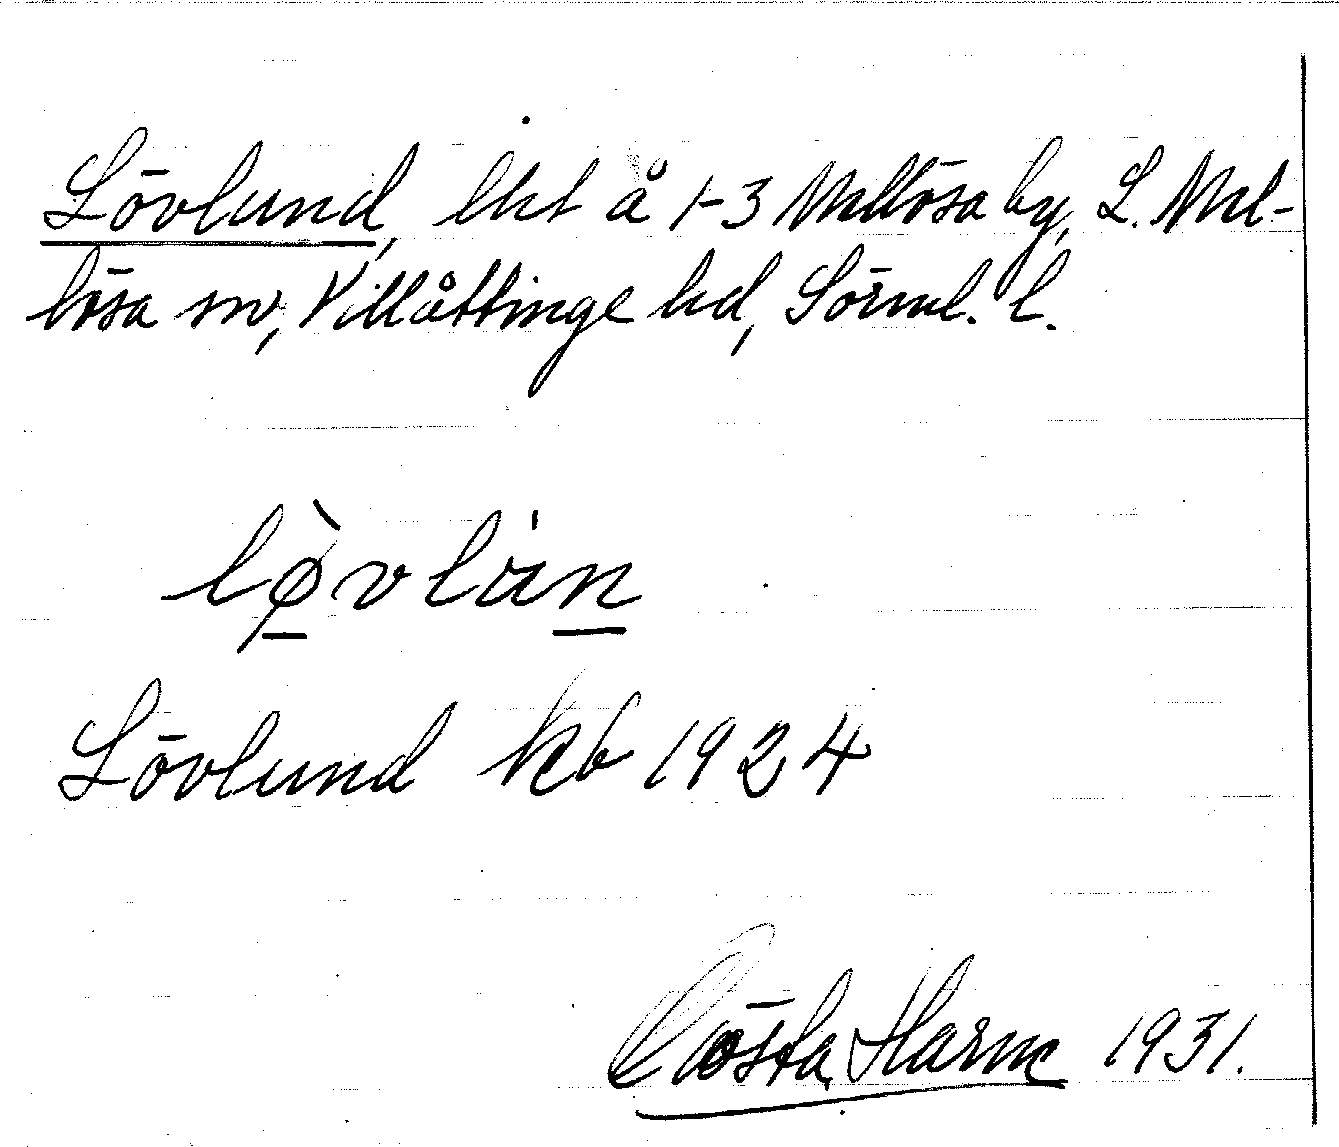 Lövlund, lht å 1-3 Mellösa by, L. Mel-
lösa sn, Villåttinge hd, Sörml. l.
lø̀vlun
Lövlund kb 1924
Gösta Harne 1931.